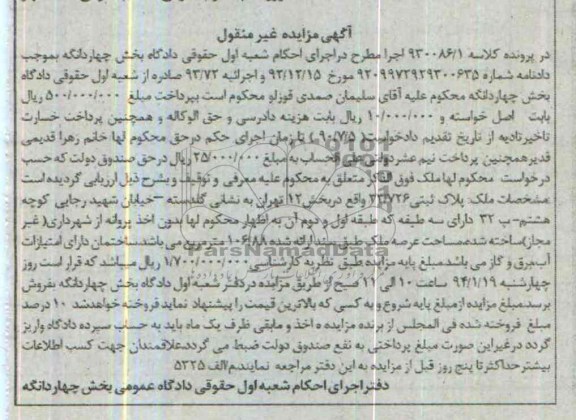 آگهی مزایده غیر منقول
در پرونده کلاسه ۹۳۰۰۸۶/۱ اجرا مطرح در اجرای احکام شعبه اول حقوقی دادگاه بخش چهاردانگه بموجب
دادنامه شماره ۹۲۰۹۹۷۲۹۲۹۳۰۰۶۳۵ مورخ ۹۲/۱۲/۱۵ و اجرائیه ۹۳/۷۲ صادره از شعبه اول حقوقی دادگاه
بخش چهاردانگه محکوم علیه آقای سلیمان صمدی قوزلو محکوم است بپرداخت مبلغ ۵۰۰/۰۰۰/۰۰۰ ریال
بابت اصل خواسته و ۱۰/۰۰۰/۰۰۰ ریال بابت هزینه دادرسی و حق الوکاله و همچنین پرداخت خسارت
تاخیر تادیه از تاریخ تقدیم دادخواست( ۹۰/۷/۵ ) تا زمان اجرای حکم در حق محکوم لها خانم زهرا قدیمی
قدیر همچنین پرداخت نیم عشر دولتی علی الحساب به مبلغ ۲۵/۰۰۰/۰۰۰ ریال در حق صندوق دولت که حسب
درخواست محکوم لها ملک فوق الذکر متعلق به محکوم علیه معرفی و توقیف و بشرح ذیل ارزیابی گردیده است
مشخصات ملک: پلاک ثبتی ۲۳/۷۲۶ واقع در بخش ۱۲ تهران به نشانی گلدسته – خیابان شهید رجایی کوچه
هشتم- پ ۳۲ دارای سه طبقه که طبقه اول و دوم آن به اظهار محکوم لها بدون اخذ پروانه از شهرداری( غیر
مجاز) ساخته شده مساحت عرصه ملک طبق سند ارائه شده ۱۰۶/۸۸ مترمربع می باشد ساختمان دارای امتیازات
آب، برق و گاز می باشد مبلغ پایه مزایده طبق نظریه کارشناسی ریال میباشد که قرار است روز
چهارشنبه ۹۴/۱/۱۹ ساعت ۱۰ الی ۱۱ صبح از طریق مزایده در دفتر شعبه اول دادگاه بخش چهاردانگه بفروش
برسد مبلغ مزایده از مبلغ پایه شروع و به کسی که بالاترین قیمت را پیشنهاد نماید فروخته خواهد شد ۱۰ درصد
مبلغ فروخته شده فی المجلس از برنده مزایده ه اخذ و مابقی ظرف یک ماه باید به حساب سپرده دادگاه واریز
گردد در غیر این صورت مبلغ پرداختی به نفع صندوق دولت ضبط می گردد. علاقمندان جهت کسب اطلاعات
بیشتر حداکثر تا پنج روز قبل از مزایده به این دفتر مراجعه نمایند.م/الف ۵۳۲۵
دفتر اجرای احکام شعبه اول حقوقی دادگاه عمومی بخش چهاردانگه
ParsNamadData